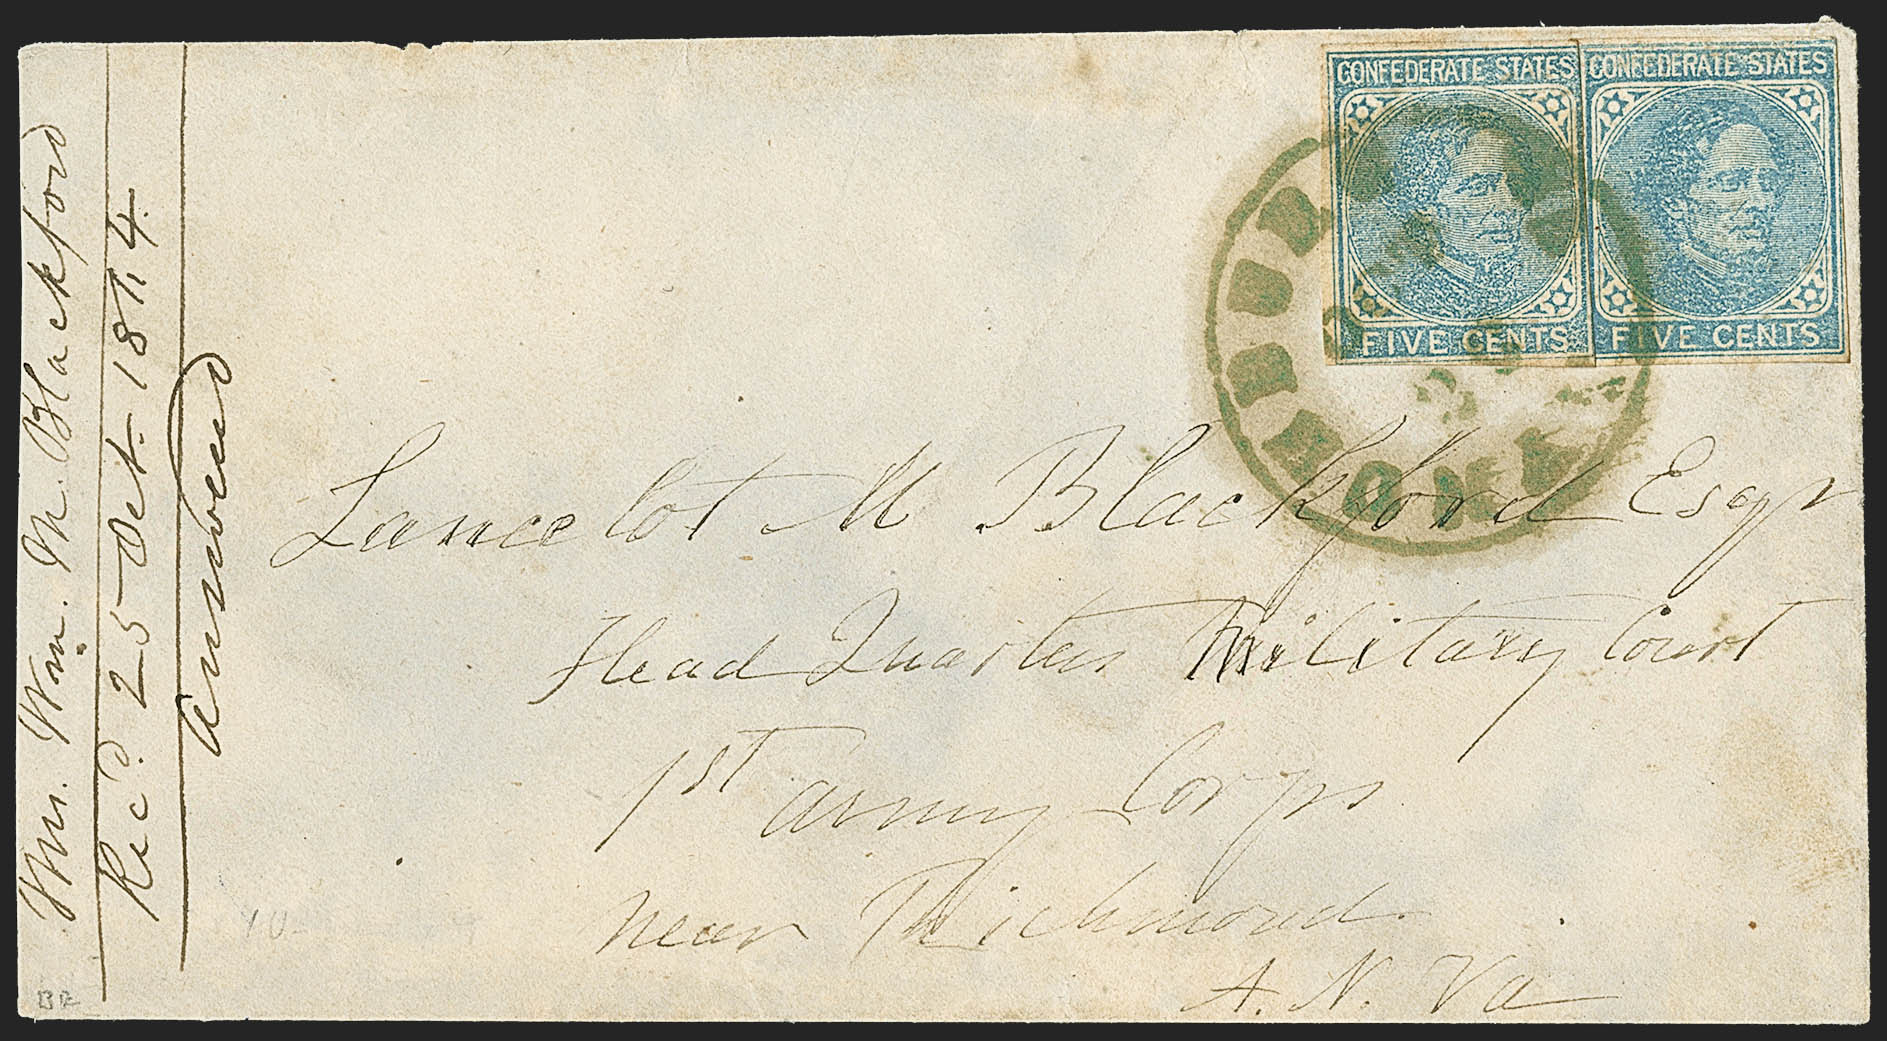 CONFEDERATE STATES
FIVE CENTS
CONFEDERATE STATES
FIVE CENTS
Lancelot M Blackford Esqr
Head Quarters Military Court
1st Army Corps
near Richmond
A. N. Va
Wm. M. Blackford
Recd. 25 Oct. 1864.
answered
BR